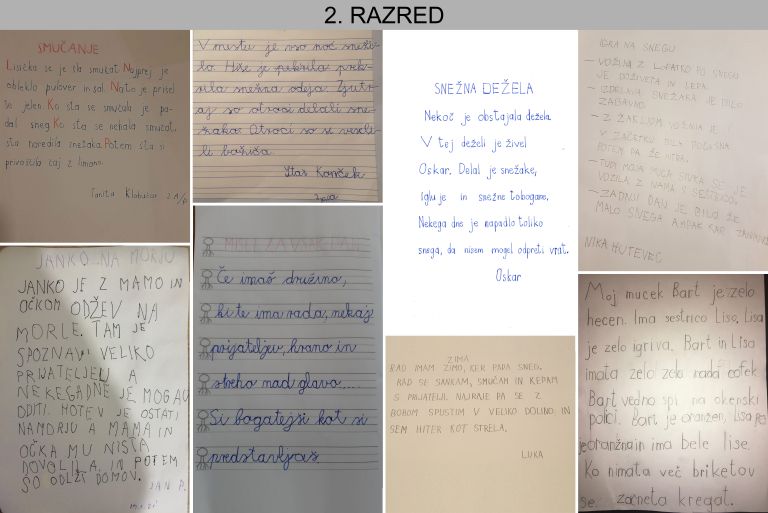 2. RAZRED
SMUČANJE
Lisička se je šla smučat. Najprej je
oblekla pulover in šal. Nato je prišel
še jelen. Ko sta se smučala je pa-
dal sneg. Ko sta se nehala smučat,
sta naredila snežaka. Potem sta si
privoščila čaj z limono.
V mestu je vso noč sneži-
lo. Hiše je pokrila prek-
snežna odeja. Zjutr-
aj so otroci delali sne-
žaka. Otroci so se vesel-
li božiča.
SNEŽNA DEŽELA
Nekoč je obstajala dežela.
V tej deželi je živel
Oskar. Delal je snežake,
igluje in snežne tobogane.
Nekega dne je napadlo toliko
snega, da nisem mogel odpreti vrat.
Oskar
IGRA NA SNEGU
- VOŽNJA Z LOPATKO PO SNEGU
JE DOŽIVETA IN LEPA.
- IZDELAVA SNEŽAKA JE BILO
ZABAVNO.
- Z ZAKLJOM VOŽNJA JE
V ZAČETKU BILA POČASNA
POTEM PA ŽE HITRA.
- TUDI MOJA MUCA SIVKA SE JE
VOZILA Z NAMA S SESTRICO.
- ZADNJI DAN JE BILO ŽE
MALO SNEGA AMPAK KAR ZANIMIVO
NIKA HUTEVEC
JANKO NA MORJU
JANKO JE Z MAMO IN
OČKOM ODŽEV NA
MORLE. TAM JE
SPOZNAV VELIKO
PRIJATELJEV A
NEKEGADNE JE MOGAU
ODITI. HOTEV JE OSTATI
NAMORJU A MAMA IN
OČKA MU NISTA
DOVOLILA. IN POTEM
SO ODŽLI DOMOV.
JAN P.
MISEL ZA VSAK DAN
Če imaš družino,
ki te ima rada, nekaj
prijateljev, hrano in
streho nad glavo...
Si bogatejši kot si
predstavljaš.
ZIMA
RAD IMAM ZIMO, KER PAPA SNEG.
RAD SE SANKAM, SMUČAM IN KEPAM
S PRIJATELJI. NAJRAJE PA SE Z
BOBOM SPUSTIM V VELIKO DOLINO IN
SEM HITER KOT STRELA.
LUKA
Moj mucek Bart je zelo
hecen. Ima sestrico Liso. Lisa
je zelo igriva. Bart in Lisa
imata zelo zelo rada cofek
Bart vedno spi na okenski
polici. Bart je oranžen, Lisa pa
je oranžna in ima bele lise.
Ko nimata več briketov
se začneta kregat.